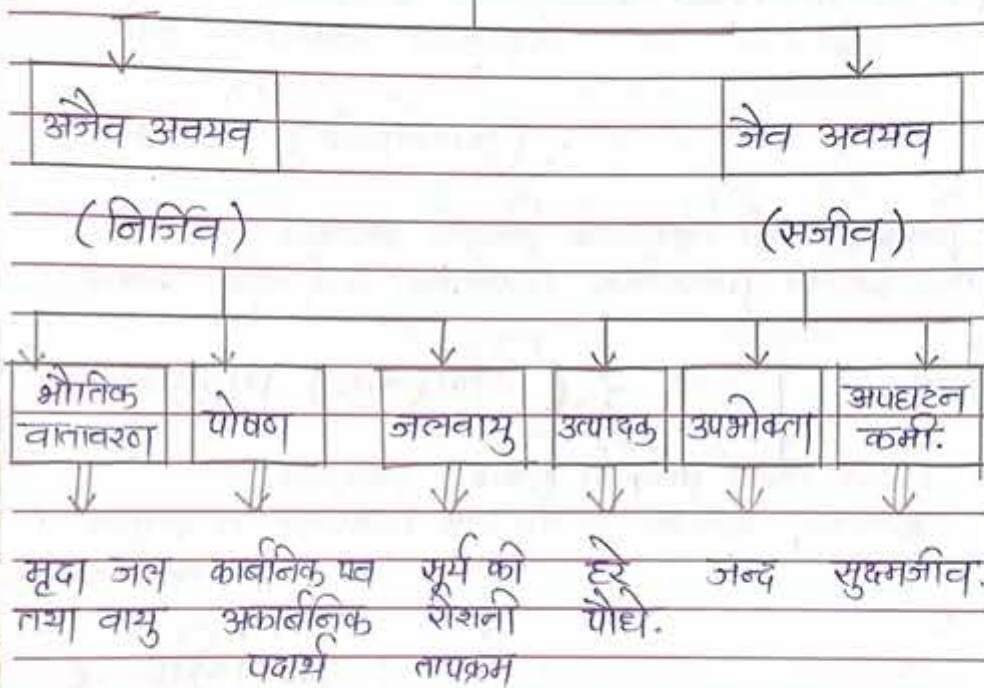 अजैव अवयव
जैव अवयव
(निर्जिव)
(सजीव)
भौतिक
वातावरण
पोषण
जलवायु
उत्पादक
उपभोक्ता
अपघटन
कर्मी.
मृदा जल
तथा वायु
कार्बनिक एव
अकार्बनिक
पदार्थ
सूर्य की
रोशनी
तापक्रम
हरे
पौधे.
जन्द
सुक्ष्मजीव.